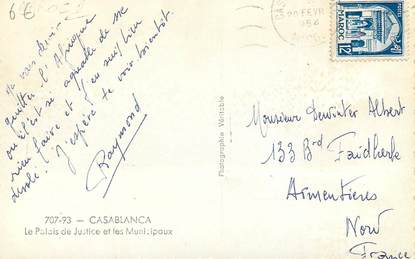 6€
Je vais devoir
quitter l'Afrique
où il fait si agréable de ne
rien faire et j'en suis bien
désolé. J'espère te voir bientôt.
Raymond
707-93 — CASABLANCA
Le Palais de Justice et les Municipaux
Photographie Véritable
FEVR
MAROC
12
Monsieur Dewinter Albert
133 Bd Faidherbe
Armentières
Nord
France